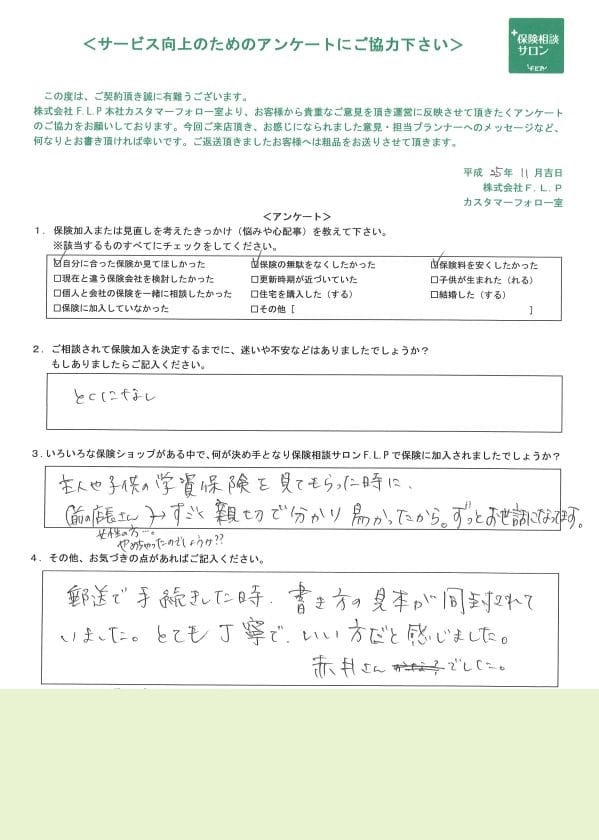 ＜サービス向上のためのアンケートにご協力下さい＞
+保険相談
サロン
F.L.P
この度は、ご契約頂き誠に有難うございます。
株式会社F.L.P本社カスタマーフォロー室より、お客様から貴重なご意見を頂き運営に反映させて頂きたくアンケート
のご協力をお願いしております。今回ご来店頂き、お感じになられました意見・担当プランナーへのメッセージなど、
何なりとお書き頂ければ幸いです。ご返送頂きましたお客様へは粗品をお送りさせて頂きます。
平成 25年 11月吉日
株式会社F.L.P
カスタマーフォロー室
＜アンケート＞
1．保険加入または見直しを考えたきっかけ（悩みや心配事）を教えて下さい。
※該当するものすべてにチェックをしてください。
☑自分に合った保険か見てほしかった ☑保険の無駄をなくしたかった ☑保険料を安くしたかった
□現在と違う保険会社を検討したかった □更新時期が近づいていた □子供が生まれた（れる）
□個人と会社の保険を一緒に相談したかった □住宅を購入した（する） □結婚した（する）
□保険に加入していなかった □その他［ ］
2．ご相談されて保険加入を決定するまでに、迷いや不安などはありましたでしょうか？
もしありましたらご記入ください。
とくになし
3．いろいろな保険ショップがある中で、何が決め手となり保険相談サロンF.L.Pで保険に加入されましたでしょうか？
主人や子供の学資保険を見てもらった時に、
（前の店長さん）→すごく親切で分かり易かったから。ずっとお世話になってます。
女性の方…。
やめちゃったのでしょうか??
4．その他、お気づきの点があればご記入ください。
郵送で手続きした時、書き方の見本が同封されて
いました。とても丁寧で、いい方だと感じました。
赤井さん でした。